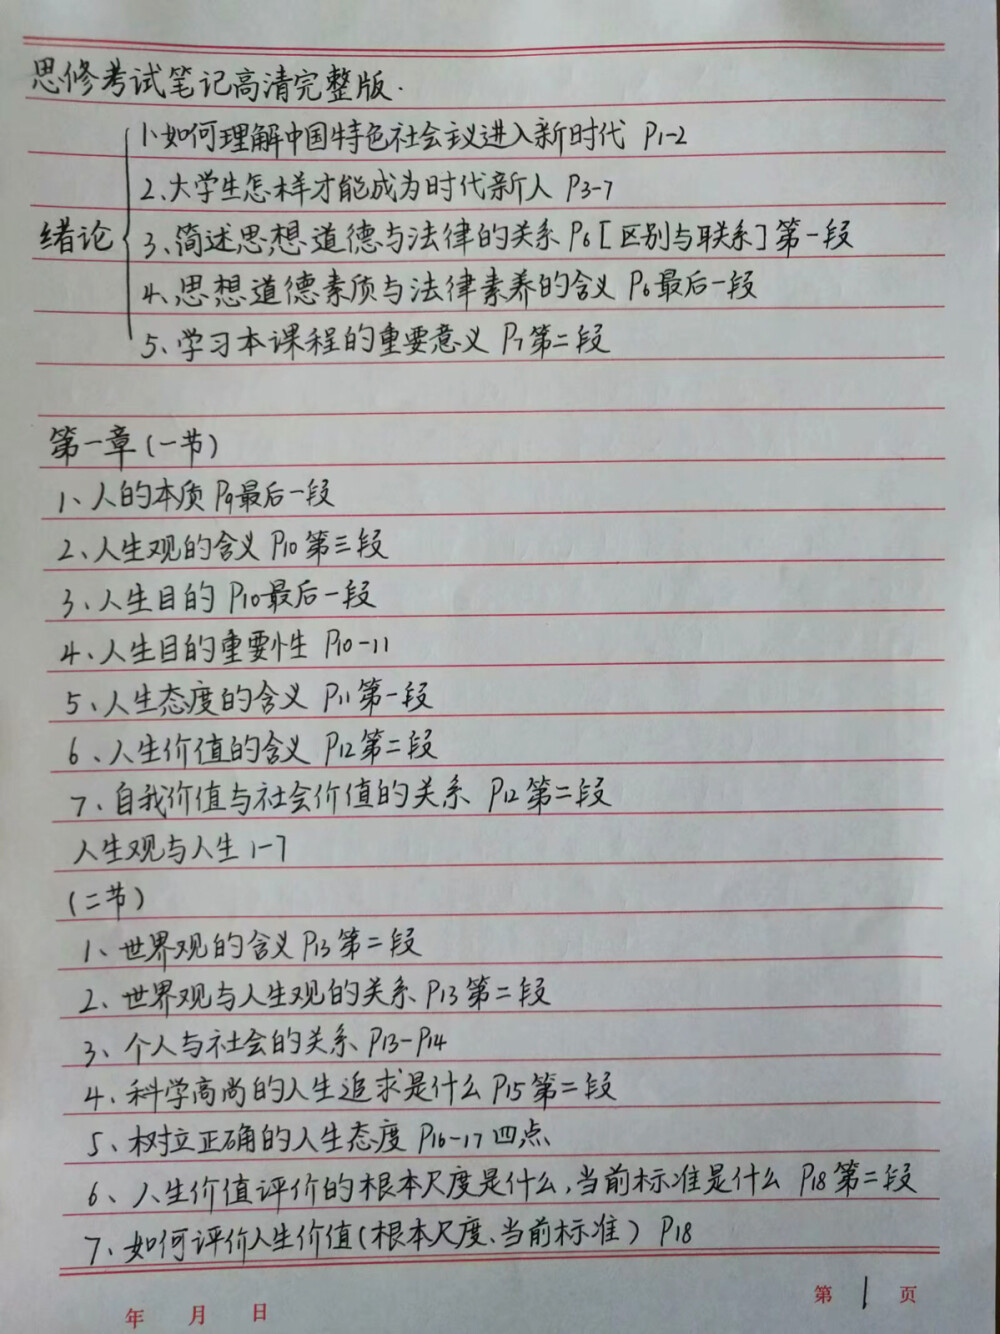 思修考试笔记高清完整版.
1、如何理解中国特色社会主义进入新时代 P1-2
2、大学生怎样才能成为时代新人 P3-7
绪论
3、简述思想道德与法律的关系 P6 [区别与联系] 第一段
4、思想道德素质与法律素养的含义 P6最后一段
5、学习本课程的重要意义 P7第二段
第一章(一节)
1、人的本质 P9最后一段
2、人生观的含义 P10第三段
3、人生目的 P10最后一段
4、人生目的重要性 P10-11
5、人生态度的含义 P11第一段
6、人生价值的含义 P12第二段
7、自我价值与社会价值的关系 P12第二段
人生观与人生1-7
(二节)
1、世界观的含义 P13第二段
2、世界观与人生观的关系 P13第二段
3、个人与社会的关系 P13-P14
4、科学高尚的人生追求是什么 P15第二段
5、树立正确的人生态度 P16-17四点
6、人生价值评价的根本尺度是什么,当前标准是什么 P18第二段
7、如何评价人生价值(根本尺度、当前标准) P18
第 1 页
年 月 日